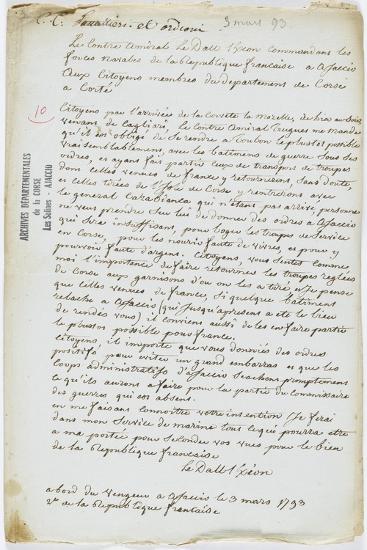 3 mars 93
Le Contre amiral Le Dall Txeon commandant les
forces navales de la République francaise a ajaccio
aux Citoyens membres du departement de Corse
a Corté
10
ARCHIVES DÉPARTEMENTALES
de la CORSE
Les Salines - AJACCIO
Citoyens par l'arrivée de la Corvette la
venant de cagliari, le Contre amiral truguet me mande
qu'il est obligé de se rendre a toulon le plustot possible
vraisemblablement, avec les batimens de guerre sous ses
ordres, et ayant fait partir de transport de troupes
dont celles venues de france y retourneront, sans doute
et celles tirées de l'Isle de Corse y rentreront avec
le general Casabianca qui n'etant pas arrivé, personne
ne veut prendre sur lui de donner des ordres a ajaccio
qui sera insuffisant, pour loger les troupes de service
en Corse, pour les nourir faute de vivres, et pour y
pourvoir faute d'argent. Citoyens, vous sentés comme
moi l'importance de faire retourner les troupes reglées
de Corse aux garnisons d'ou on les a tiré et Je pense
que celles venues de france, si quelque batiment
relache a ajaccio (qui jusqu'apresent a eté le lieu
de rendés vous) il convient aussi de les en faire partir
le plustot possible pour france.
Citoyens, il importe que vous donniés des ordres
positifs pour eviter un grand embarras et que les
corps administratifs d'ajaccio sachent promptement
ce qu'ils auront a faire pour la partie du commissaire
des guerres qui est absent.
en me faisant connoitre votre intention Je ferai
dans mon service de marine tout ce qui pourra etre
a ma portée pour seconder vos vues pour le bien
de la République francaise
Le Dall Txéon
a bord du Vengeur a ajaccio le 3 mars 1793
2me de la République francaise